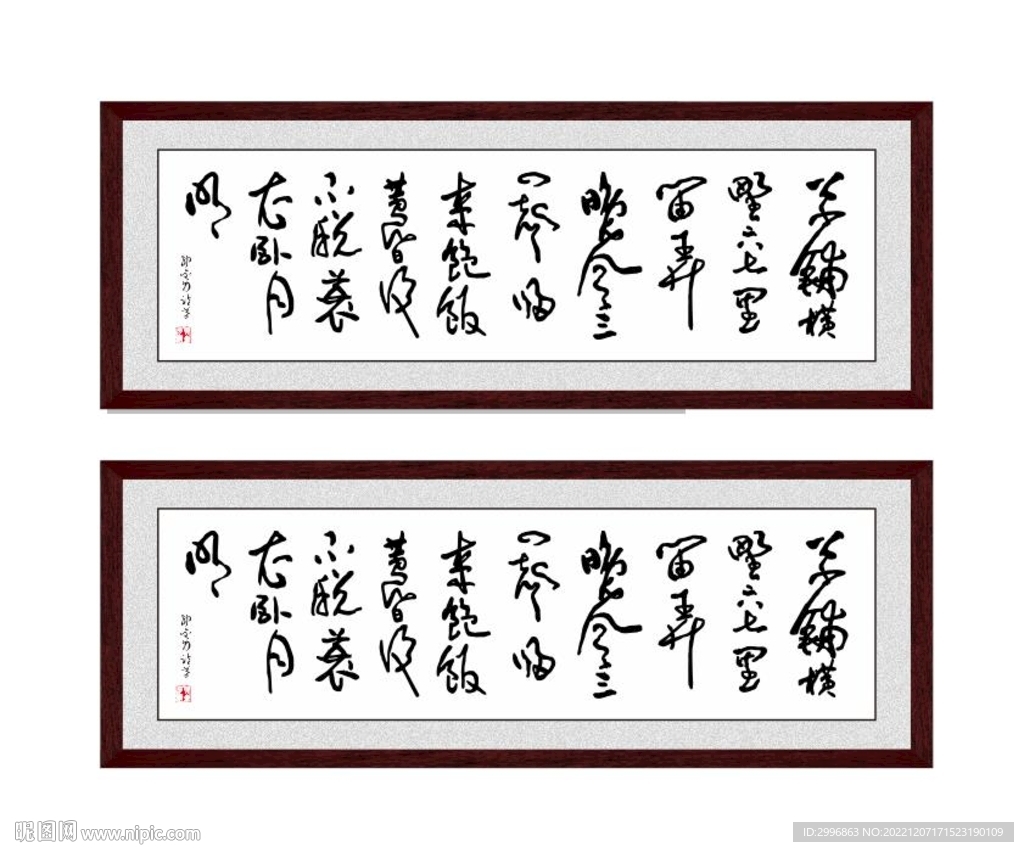 草鋪横
野六七里
笛弄
晚風三
四聲歸
来飽飯
黄昏後
不脱蓑
衣卧月
明
草鋪横
野六七里
笛弄
晚風三
四聲歸
来飽飯
黄昏後
不脱蓑
衣卧月
明
昵图网 www.nipic.com
ID:2996863 NO:20221207171523190109